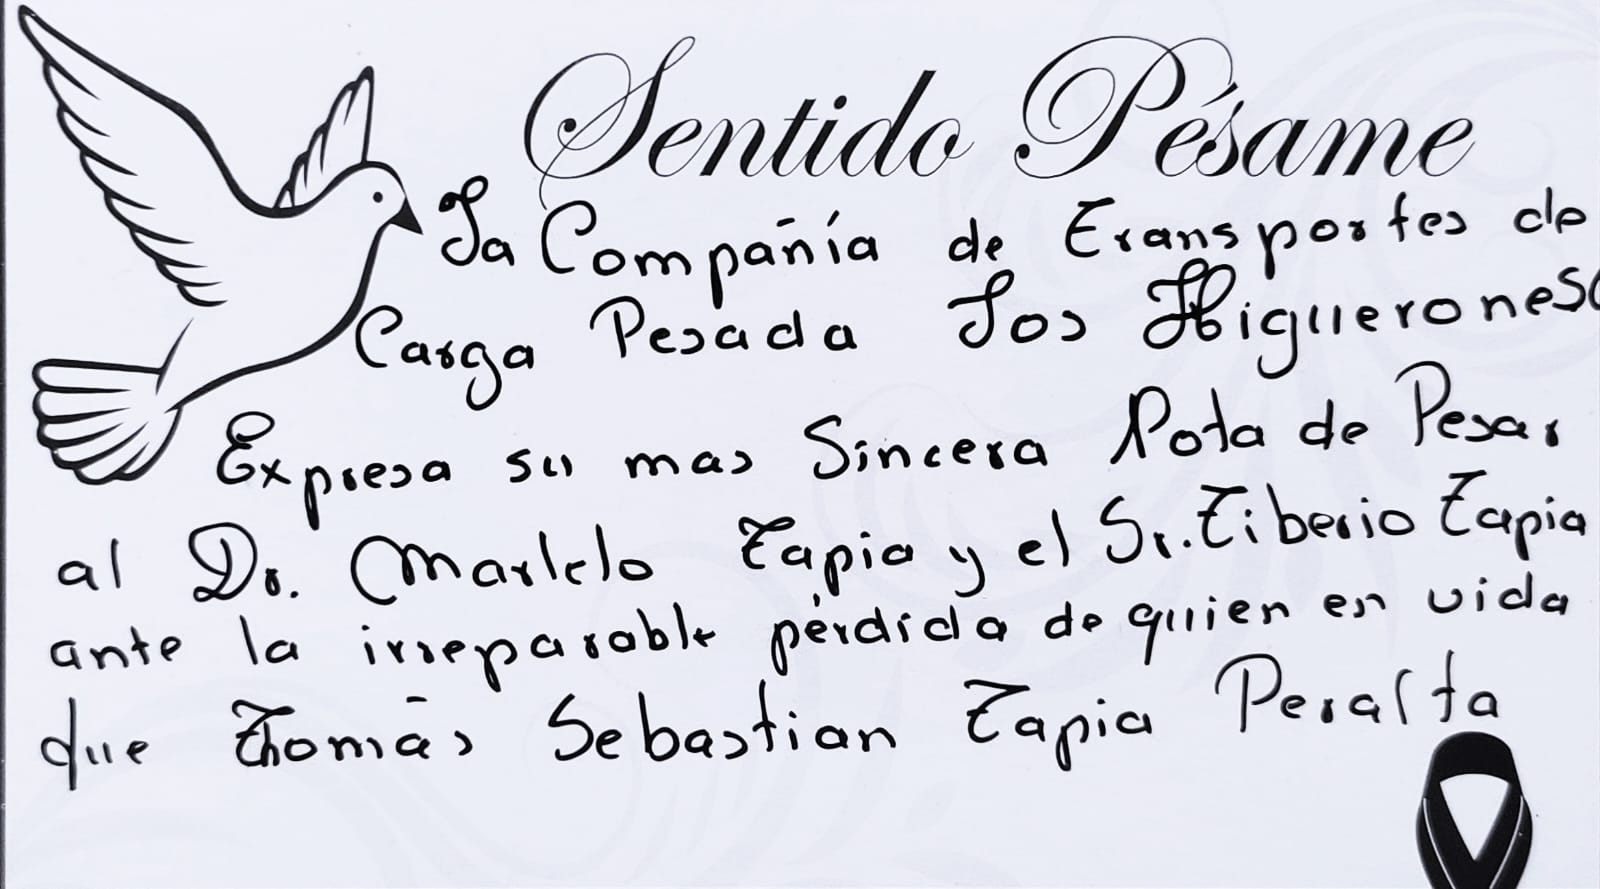 Sentido Pésame
La Compañía de Transportes de
Carga Pesada Los Higuerones
Expresa su mas Sincera Nota de Pesar
al Dr. Marcelo Tapia y el Sr. Tiberio Tapia
ante la irreparable pérdida de quien en vida
fue Thomás Sebastian Tapia Peralta